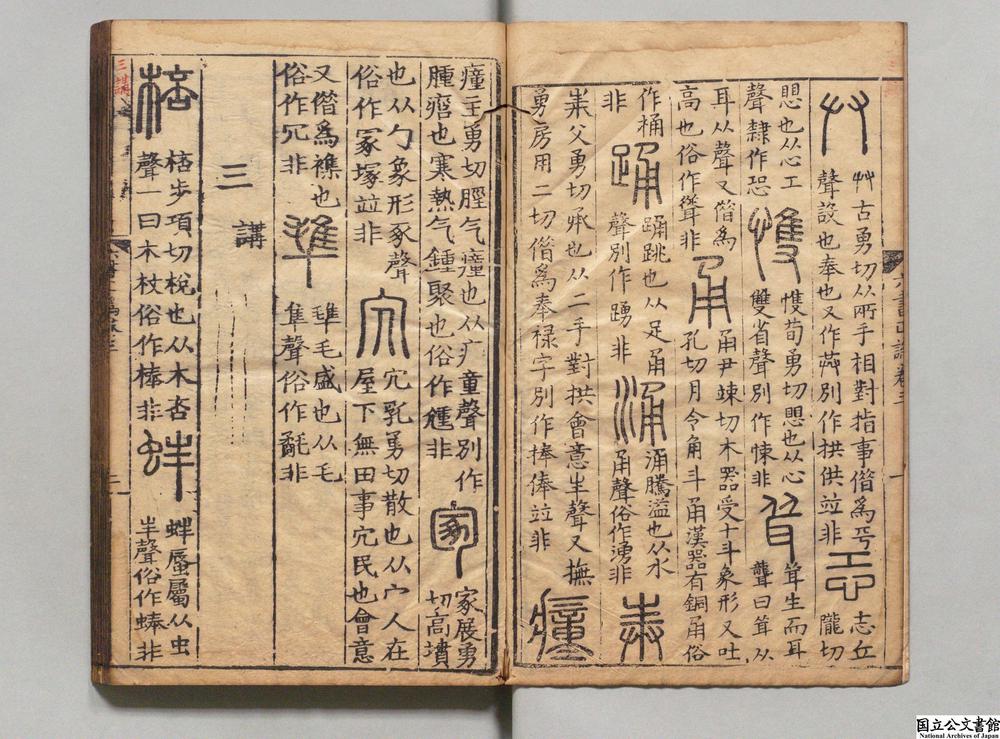 艸古勇切从兩手相對指事偕爲
聲設也奉也又作 別作拱供竝非
志丘
隴切
愳也从心工
聲隸作恐
愯荀勇切愳也从心
雙省聲別作悚非
耳
茸生而耳
聾曰茸从
耳从聲又偕爲
高也俗作聳非
甬
甬尹竦切木器受十斗象形又吐
孔切月令角斗甬漢器有銅甬俗
作桶
非
踊
踊跳也从足甬
聲別作踴非
涌
涌騰溢也从水
甬聲俗作湧非
奉父勇切承也从二手對拱會意丰聲又撫
勇房用二切偕爲奉祿字別作捧俸竝非
瘴
𤺄主勇切脛气𤺄也从疒童聲別作
腫瘤也寒熱气鍾聚也俗作尰非
冢
冢展勇
切高墳
也从勹象形豕聲
俗作冢塚竝非
宂
宂乳勇切散也从宀人在
屋下無田事宂民也會意
又偕爲 也
俗作冗非
毛盛也从毛
隼聲俗作氄非
三
講
棓
棓步項切梲也从木咅
聲一曰木杖俗作棒非
蚌
蚌蜃屬从虫
丰聲俗作蜯非
三講
国立公文書館
National Archives of Japan